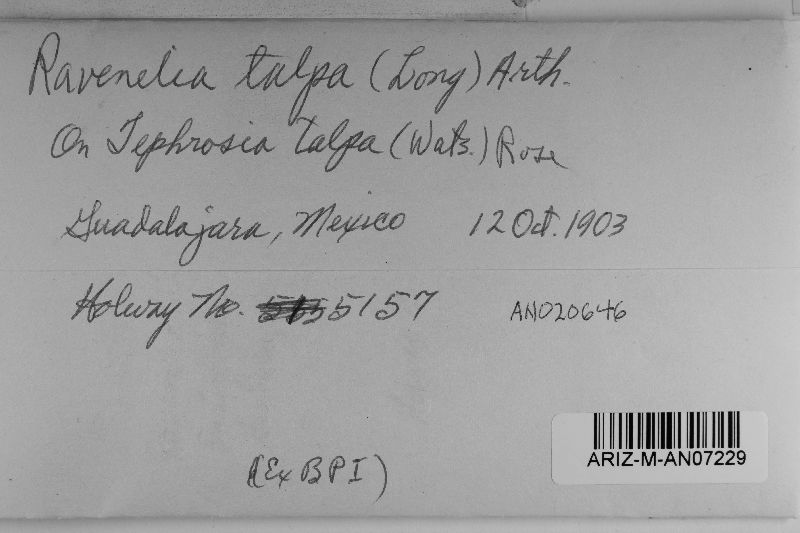 Ravenelia talpa (Long) Arth.
On Tephrosia talpa (Wats.) Rose
Guadalajara, Mexico 12 Oct. 1903
Holway No. 5157 AN020646
ARIZ-M-AN07229
(Ex BPI)